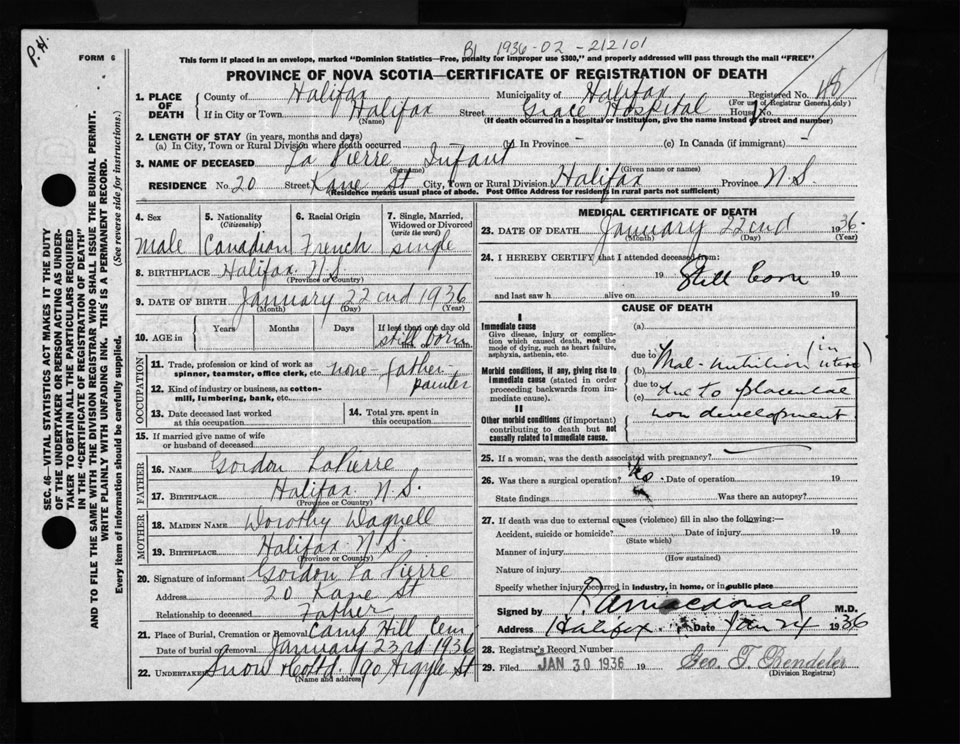 P.H.
B1 1936-02-212101
FORM 6
This form if placed in an envelope, marked "Dominion Statistics—Free, penalty for improper use $300," and properly addressed will pass through the mail "FREE"
PROVINCE OF NOVA SCOTIA—CERTIFICATE OF REGISTRATION OF DEATH
1. PLACE OF DEATH County of Halifax Municipality of Halifax Registered No. 48
(For use of Registrar General only)
If in City or Town Halifax Street Grace Hospital House No.
(Name) (If death occurred in a hospital or institution, give the name instead of street and number)
2. LENGTH OF STAY (in years, months and days)
(a) In City, Town or Rural Division where death occurred (b) In Province (c) In Canada (if immigrant)
3. NAME OF DECEASED La Pierre Infant
(Surname) (Given name or names)
RESIDENCE No. 20 Street Kane St City, Town or Rural Division Halifax Province N.S.
(Residence means usual place of abode. Post Office Address for residents in rural parts not sufficient)
SEC. 46—VITAL STATISTICS ACT MAKES IT THE DUTY
OF THE UNDERTAKER OR PERSON ACTING AS UNDER-
TAKER TO OBTAIN ALL THE PARTICULARS REQUIRED
IN THE "CERTIFICATE OF REGISTRATION OF DEATH"
AND TO FILE THE SAME WITH THE DIVISION REGISTRAR WHO SHALL ISSUE THE BURIAL PERMIT.
WRITE PLAINLY WITH UNFADING INK. THIS IS A PERMANENT RECORD.
Every item of information should be carefully supplied. (See reverse side for instructions.)
4. Sex 5. Nationality 6. Racial Origin 7. Single, Married,
(Citizenship) Widowed or Divorced
(write the word)
Male Canadian French single
8. BIRTHPLACE Halifax N.S.
(Province or Country)
9. DATE OF BIRTH January 22nd 1936
(Month) (Day) (Year)
10. AGE in Years Months Days If less than one day old
still born
OCCUPATION
11. Trade, profession or kind of work as
spinner, teamster, office clerk, etc. none - father
painter
12. Kind of industry or business, as cotton-
mill, lumbering, bank, etc.
13. Date deceased last worked
at this occupation
14. Total yrs. spent in
this occupation
15. If married give name of wife
or husband of deceased
FATHER
16. NAME Gordon LaPierre
17. BIRTHPLACE Halifax N.S.
(Province or Country)
MOTHER
18. MAIDEN NAME Dorothy Dagnell
19. BIRTHPLACE Halifax N.S.
(Province or Country)
20. Signature of informant Gordon La Pierre
Address 20 Kane St
Relationship to deceased Father
21. Place of Burial, Cremation or Removal Camp Hill Cem
Date of burial or removal January 23rd 1936
22. UNDERTAKER Snow Co Ltd 90 Argyle St
(Name and Address)
MEDICAL CERTIFICATE OF DEATH
23. DATE OF DEATH January 22nd 1936
(Month) (Day) (Year)
24. I HEREBY CERTIFY that I attended deceased from:
19 Still Born 19
and last saw h alive on 19
CAUSE OF DEATH
I
Immediate cause
Give disease, injury or complica-
tion which caused death, not the
mode of dying, such as heart failure,
asphyxia, asthenia, etc.
Morbid conditions, if any, giving rise to
immediate cause (stated in order
proceeding backwards from im-
mediate cause).
II
Other morbid conditions (if important)
contributing to death but not
causally related to immediate cause.
(a)
due to
(b) Mal-nutrition (in utero)
due to
(c) due to placental
non development
25. If a woman, was the death associated with pregnancy?
26. Was there a surgical operation? No. Date of operation 19
State findings Was there an autopsy?
27. If death was due to external causes (violence) fill in also the following:—
Accident, suicide or homicide? Date of injury 19
(State which)
Manner of injury
(How sustained)
Nature of injury
Specify whether injury occurred in industry, in home, or in public place
Signed by Macdonald M.D.
Address Halifax Date Jan 24 1936
28. Registrar's Record Number
29. Filed JAN 30 1936 19 Geo. T. Bendeler
(Division Registrar)